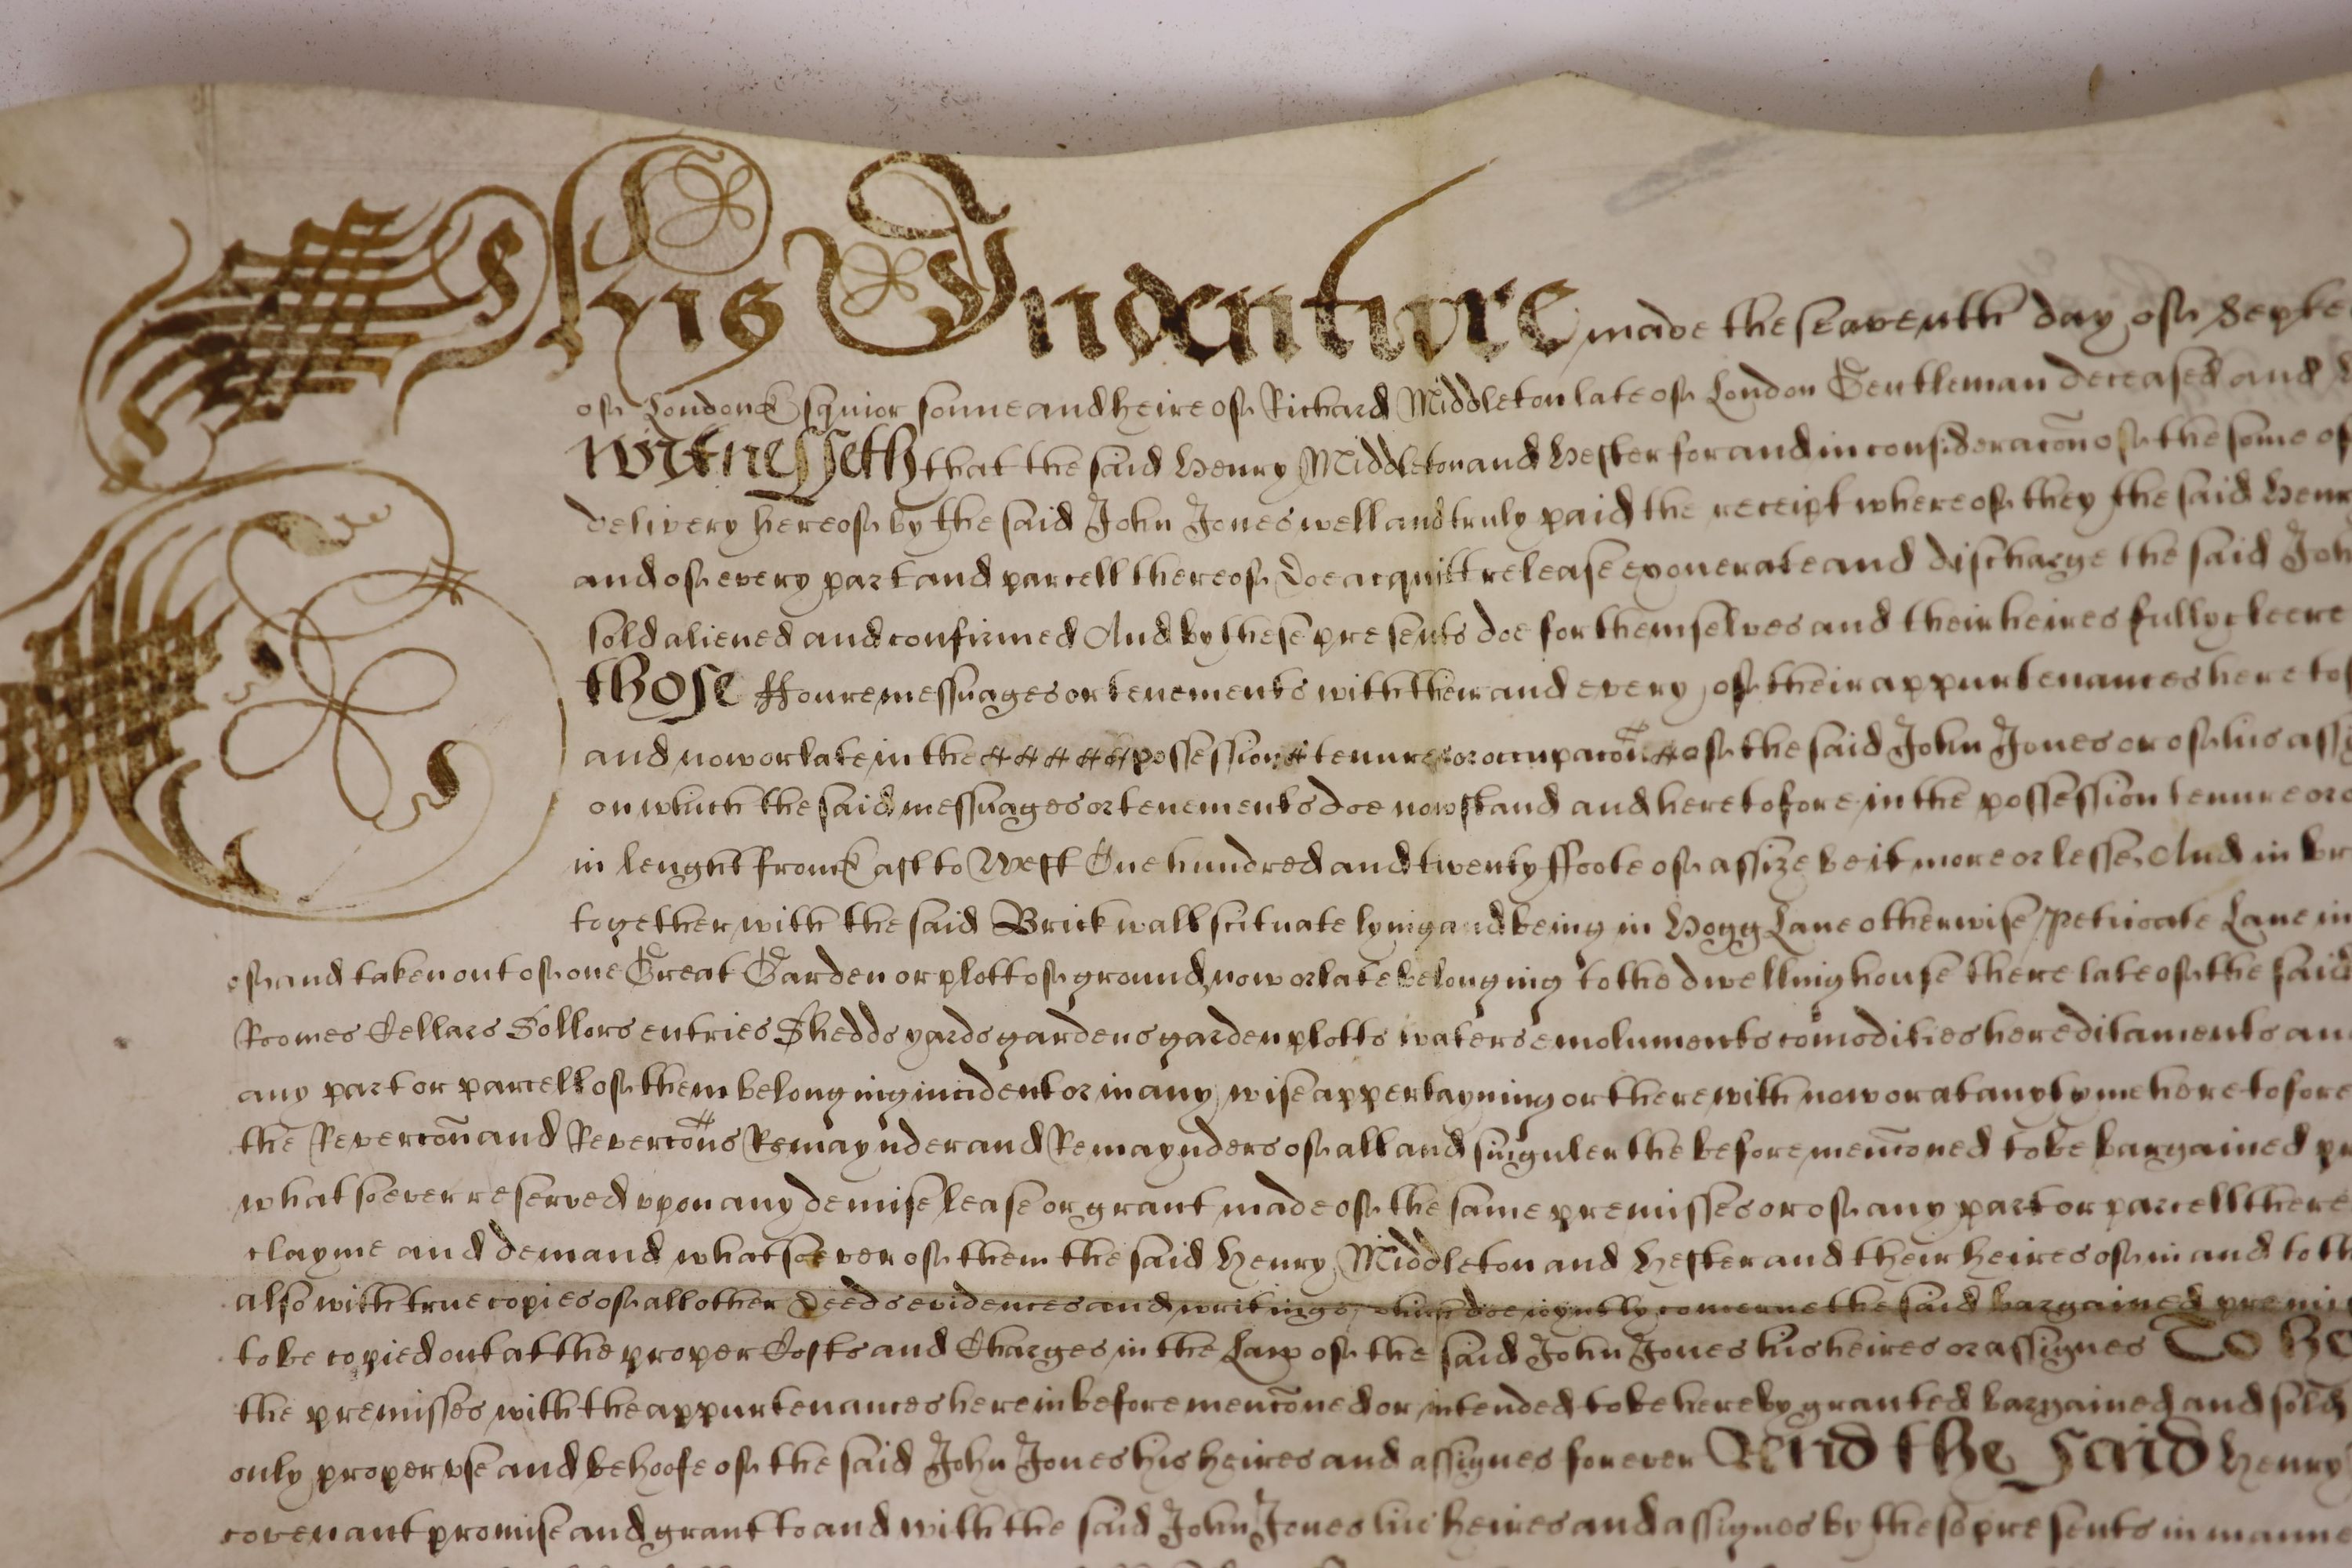 This Indenture made the seaventh day of Septe
of London Esquior sonne and heire of Richard Middleton late of London Gentleman deceased and
Witnesseth that the said Henry Middleton and Hester for and in consideracōn of the some of
delivery hereof by the said John Jones well and truly paid the receipt whereof they the said Henr
and of every part and parcell thereof Doe acquitt release exonerate and discharge the said Joh
sold aliened and confirmed And by these presents doe for themselves and their heires fully cleere
those ffoure messuages or tenements with their and every of their appurtenances heretof
and now or late in the possession tenure or occupacōn of the said John Jones or of his assi
on which the said messuages or tenements doe now stand and heretofore in the possession tenure or o
in lenght from East to West One hundred and twenty ffoote of assize be it more or lesse And in br
together with the said Brick wall scituate lying and being in Hogg Lane otherwise Petticoate Lane in
of and taken out of one Great Garden or plott of ground now or late belonging to the dwelling house there late of the said
Roomes Cellars Sollors entries Shedds yards gardens garden plotts waters emoluments comōdities hereditaments an
any part or parcell of them belonging incident or in any wise appertayning or therewith now or at any tyme heretofore
the Revercōn and Revercōns Remaynder and Remaynders of all and singuler the before mencōned to be bargained pr
whatsoever reserved upon any demise lease or grant made of the same premisses or of any part or parcell there
clayme and demand whatsoever of them the said Henry Middleton and Hester and their heires of in and to th
also with true copies of all other Deeds evidences and writings which doe ioyntly concerne the said bargained premis
to be copied out at the proper Costs and Charges in the Law of the said John Jones his heires or assignes To ha
the premisses with the appurtenances hereinbefore mencōned or intended to be hereby granted bargained and sold
only proper use and behoofe of the said John Jones his heires and assignes for ever And the said Henry
covenant promise and grant to and with the said John Jones his heires and assignes by these presents in mann